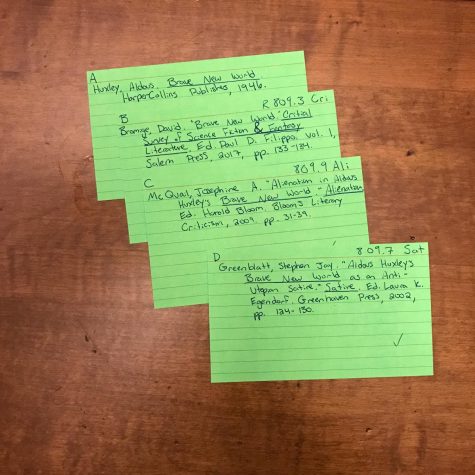 A
Huxley, Aldous. Brave New World.
HarperCollins Publishes, 1946.
B
R 809.3 Cri
Bromige, David. "Brave New World." Critical
Survey of Science Fiction & Fantasy
Literature. Ed. Paul D. Filippo, Vol. 1,
Salem Press, 2017, pp. 133-134.
C
809.9 Ali
McQuail, Josephine A. "Alienation in Aldous
Huxley's Brave New World." Alienation
Ed. Harold Bloom. Bloom's Literary
Criticism, 2009. pp. 31-39.
D
809.7 Sat
Greenblatt, Stephan Jay. "Aldous Huxley's
Brave New World as an Anti-
Utopian Satire." Satire. Ed. Laura K.
Egendorf. Greenhaven Press, 2002,
pp. 124-130.